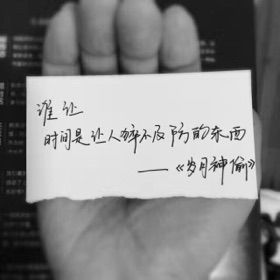 谁让
时间是让人猝不及防的东西
——《岁月神偷》